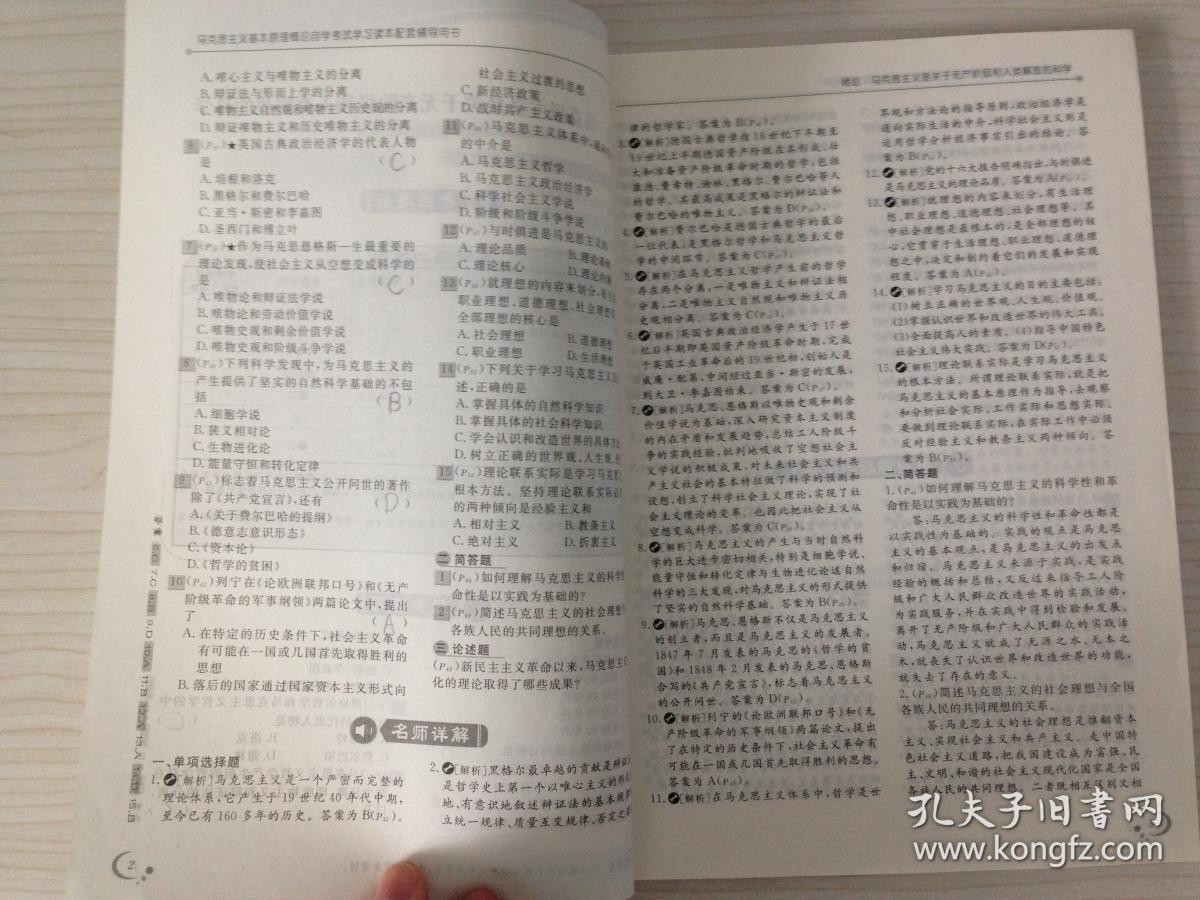 马克思主义基本原理概论自学考试学习读本配套辅导用书
A. 唯心主义与唯物主义的分离
B. 辩证法与形而上学的分离
C. 唯物主义自然观和唯物主义历史观的分离
D. 辩证唯物主义和历史唯物主义的分离
6 ★英国古典政治经济学的代表人物
是 ( C )
A. 培根和洛克
B. 黑格尔和费尔巴哈
C. 亚当·斯密和李嘉图
D. 圣西门和傅立叶
7 ★作为马克思恩格斯一生最重要的
理论发现,使社会主义从空想变成科学的
是 ( C )
A. 唯物论和辩证法学说
B. 唯物论和劳动价值学说
C. 唯物史观和剩余价值学说
D. 唯物史观和阶级斗争学说
8 下列科学发现中,为马克思主义的
产生提供了坚实的自然科学基础的不包
括 ( B )
A. 细胞学说
B. 狭义相对论
C. 生物进化论
D. 能量守恒和转化定律
9 标志着马克思主义公开问世的著作
除了《共产党宣言》,还有 ( D )
A.《关于费尔巴哈的提纲》
B.《德意志意识形态》
C.《资本论》
D.《哲学的贫困》
10 列宁在《论欧洲联邦口号》和《无产
阶级革命的军事纲领》两篇论文中,提出
了 ( A )
A. 在特定的历史条件下,社会主义革命
有可能在一国或几国首先取得胜利的
思想
B. 落后的国家通过国家资本主义形式向
社会主义过渡的思想
C. 新经济政策
D. 战时共产主义政策
11 马克思主义体系中,
的中介是
A. 马克思主义哲学
B. 马克思主义政治经济学
C. 科学社会主义学说
D. 阶级和阶级斗争学说
12 与时俱进是马克思主义的
A. 理论品质 B. 理论基础
C. 理论核心 D. 理论内涵
13 就理想的内容来划分,
职业理想、道德理想、社会理想等
全部理想的核心是
A. 社会理想 B. 道德理想
C. 职业理想 D. 生活理想
14 下列关于学习马克思主义
述,正确的是
A. 掌握具体的自然科学知识
B. 掌握具体的社会科学知识
C. 学会认识和改造世界的具体方
D. 树立正确的世界观、人生观、价
15 理论联系实际是学习马克思
根本方法。坚持理论联系实际
的两种倾向是经验主义和
A. 相对主义 B. 教条主义
C. 绝对主义 D. 折衷主义
二 简答题
1 如何理解马克思主义的科学性
命性是以实践为基础的?
2 简述马克思主义的社会理想
各族人民的共同理想的关系。
三 论述题
新民主主义革命以来,马克思主
化的理论取得了哪些成果?
名师详解
一、单项选择题
1. [解析]马克思主义是一个严密而完整的
理论体系,它产生于19世纪40年代中期,
至今已有160多年的历史。答案为B
2. [解析]黑格尔最卓越的贡献是辩证
是哲学史上第一个以唯心主义的形式
地、有意识地叙述辩证法的基本规律
立统一规律、质量互变规律、否定之否
2
绪论 马克思主义是关于无产阶级和人类解放的科学
律的哲学家。答案为B
3. [解析]德国古典哲学指18世纪下半期至
19世纪上半期德国资产阶级在其形成、壮
大和准备资产阶级革命时期的哲学,包括
康德、费希特、谢林、黑格尔、费尔巴哈等人
的哲学。其最高成果是黑格尔的辩证法和
费尔巴哈的唯物主义。答案为D
4. [解析]费尔巴哈是德国古典哲学的最后
一位代表,是黑格尔哲学和马克思主义哲
学的中间环节。答案为C
5. [解析]在马克思主义哲学产生前的哲学
存在两个分离:一是唯物主义和辩证法相
分离,二是唯物主义自然观和唯物主义历
史观相分离。答案为C
6. [解析]英国古典政治经济学产生于17世
纪后半期即英国资产阶级革命时期,完成
于英国工业革命后的19世纪初,创始人是
威廉·配第,中间经过亚当·斯密的发展,
到大卫·李嘉图结束。答案为C
7. [解析]马克思、恩格斯以唯物史观和剩余
价值学说为基础,深入研究资本主义制度
的内在矛盾和发展趋势,总结工人阶级斗
争的实践经验,批判地吸收了空想社会主
义学说的积极成果,对未来社会主义和共
产主义社会的基本特征做了科学的预测和
设想,创立了科学社会主义理论,实现了社
会主义理论的变革。也因此把社会主义从
空想变成科学。答案为C
8. [解析]马克思主义的产生与当时自然科
学的巨大进步密切相关,特别是细胞学说、
能量守恒和转化定律与生物进化论这自然
科学的三大发现,对马克思主义的形式提供
了坚实的自然科学基础。答案为B
9. [解析]马克思、恩格斯不仅是马克思主义
的创立者,而且是马克思主义的发展者。
1847年7月发表的马克思的《哲学的贫
困》和1848年2月发表的马克思、恩格斯
合写的《共产党宣言》,标志着马克思主义
的公开问世。答案为D
10. [解析]列宁的《论欧洲联邦口号》和《无
产阶级革命的军事纲领》两篇论文,提出
了在特定的历史条件下,社会主义革命有
可能在一国或几国首先取得胜利的思想。
答案为A
11. [解析]在马克思主义体系中,哲学是世
界观和方法论的指导原则,政治经济学是
通向实际生活的中介,科学社会主义则是
运用哲学分析经济事实引出的结论。答
案为B
12. [解析]党的十六大报告明确指出,与时俱进
是马克思主义的理论品质。答案为A
13. [解析]就理想的内容来划分,有生活理
想、职业理想、道德理想、社会理想等。其
中社会理想是最根本的,是全部理想的核
心,它贯穿于生活理想、职业理想、道德理
想之中,决定和制约着它们的发展和实现
程度。答案为A
14. [解析]学习马克思主义的目的主要包括:
(1)树立正确的世界观、人生观、价值观。
(2)掌握认识世界和改造世界的伟大工具。
(3)全面提高人的素质。(4)指导中国特色
社会主义伟大实践。答案为D
15. [解析]理论联系实际是学习马克思主义
的根本方法。所谓理论联系实际,就是把
马克思主义的基本原理作为指导,去观察
和分析社会实际、工作实际和思想实际。
要做到理论联系实际,在实际工作中必须
反对经验主义和教条主义两种倾向。答
案为B
二、简答题
1. 如何理解马克思主义的科学性和革
命性是以实践为基础的?
答:马克思主义的科学性和革命性都是
以实践性为基础的。实践的观点是马克思
主义的基本观点,是马克思主义的出发点
和归宿。马克思主义来源于实践,是实践
经验的概括和总结,又反过来指导工人阶
级和广大人民群众改造世界的实践活动,
为实践服务,并在实践中得到检验和发展。
离开了无产阶级和广大人民群众的实践活
动,马克思主义就成了无源之水、无本之
木,就丧失了认识世界和改造世界的功能,
就失去了存在的意义。
2. 简述马克思主义的社会理想与全国
各族人民的共同理想的关系。
答:马克思主义的社会理想是推翻资本
主义、实现社会主义和共产主义。走中国特
色社会主义道路,把我国建设成为富强、民
主、文明、和谐的社会主义现代化国家是全国
各族人民的共同理想。二者既相互区别又相
孔夫子旧书网
www.kongfz.com